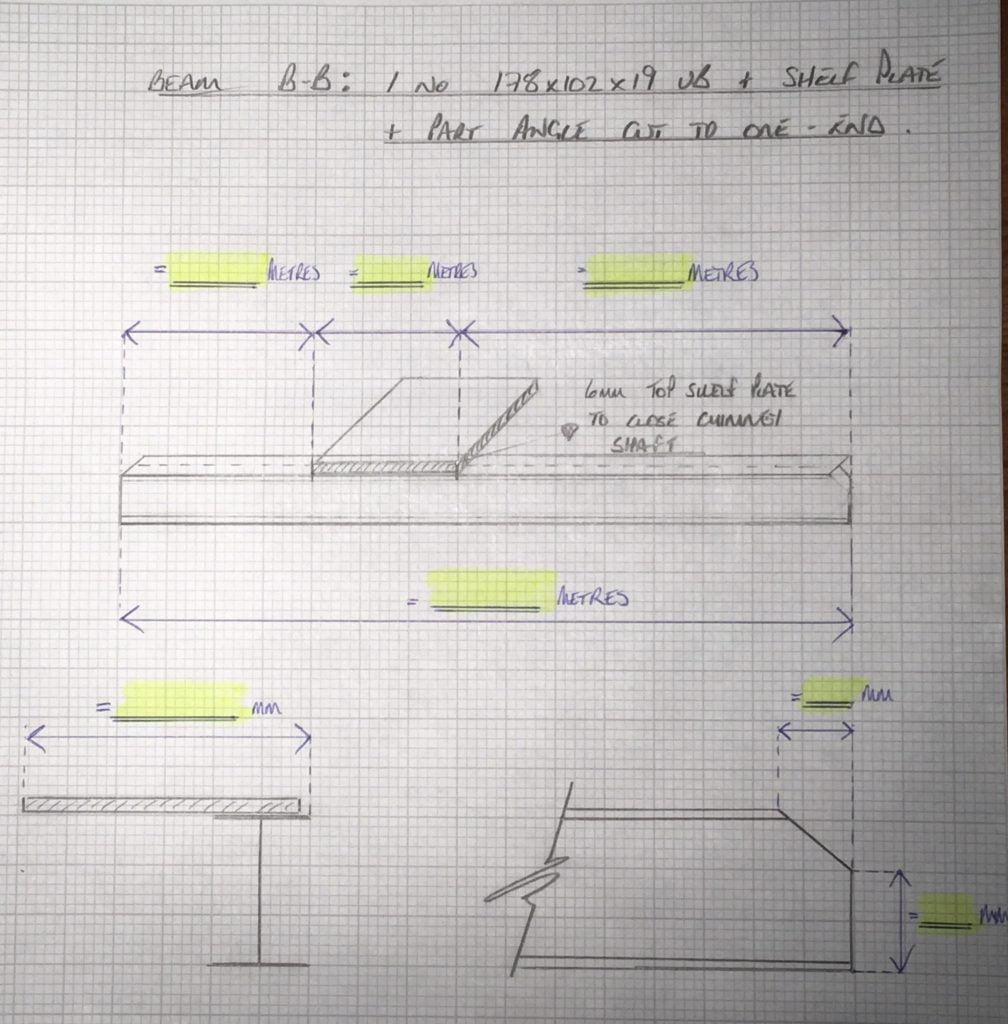 BEAM B-B: 1 No 178x102x19 UB + SHELF PLATE
+ PART ANGLE CUT TO ONE-END.
= METRES = METRES = METRES
6mm TOP SHELF PLATE
TO CLOSE CHIMNEY
SHAFT
= METRES
= mm
= mm
= mm